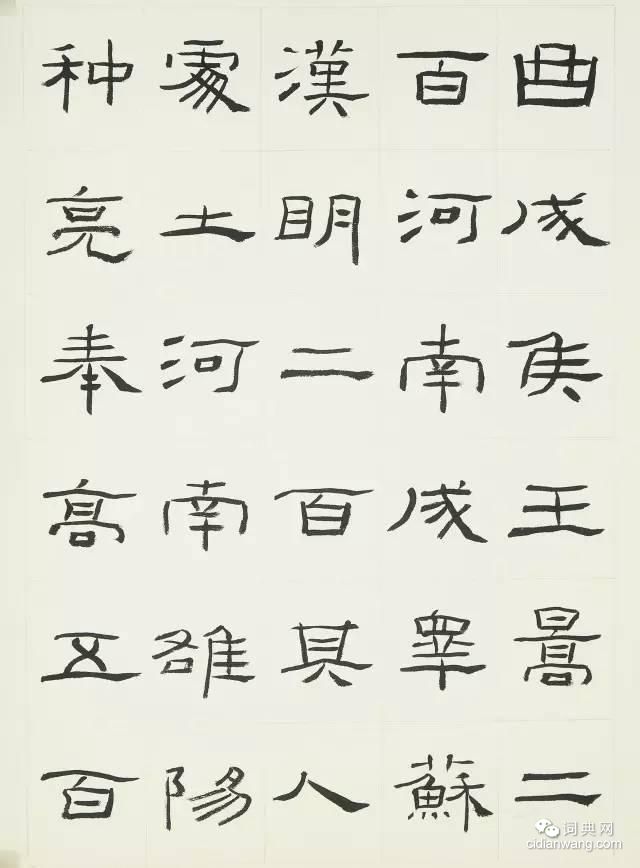 曲成侯王暠二
百河南成睾蘇
漢明二百其人
處土河南雒陽
种亮奉高五百
词典网
cidianwang.com